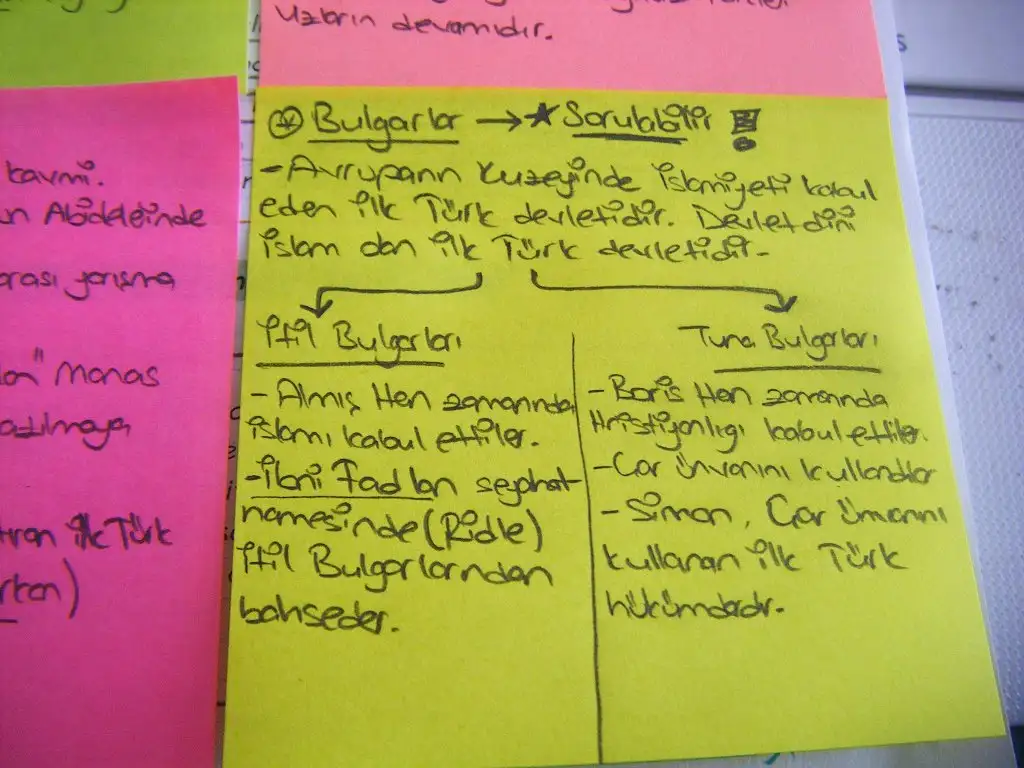 Uzların devamıdır.
kavmi.
Abidelerinde
arası yarışma
Manas
yazılmaya
ilk Türk
Bulgarlar → ★ Sorulabilir !
- Avrupanın kuzeyinde islamiyeti kabul
eden ilk Türk devletidir. Devlet dini
islam olan ilk Türk devletidir.
itil Bulgarları
- Almış Han zamanında
islamı kabul ettiler.
- ibni Fadlan seyahat
namesinde (Rıdle)
itil Bulgarlarından
bahseder.
Tuna Bulgarları
- Boris Han zamanında
Hristiyanlığı kabul ettiler.
- Çar ünvanını kullandılar
- Simon, Çar ünvanını
kullanan ilk Türk
hükümdarıdır.